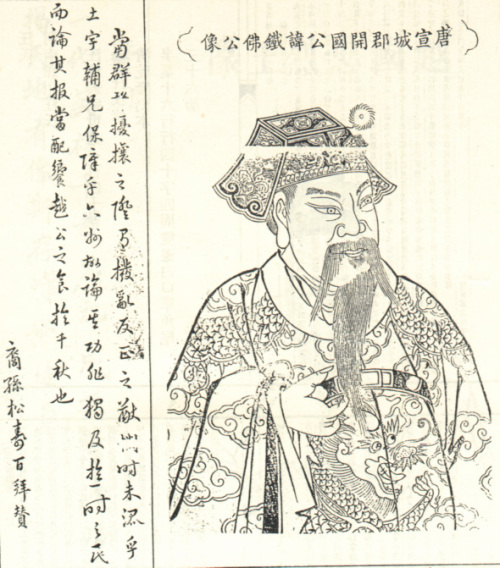 唐宣城郡開國公諱鐵佛公像
當群雄擾攘之際撥亂反正之猷時未混乎
土宇輔兄保障乎六州故論其功非獨及於一時之民
而論其报當配饗越公之食於千秋也
裔孫松壽百拜贊